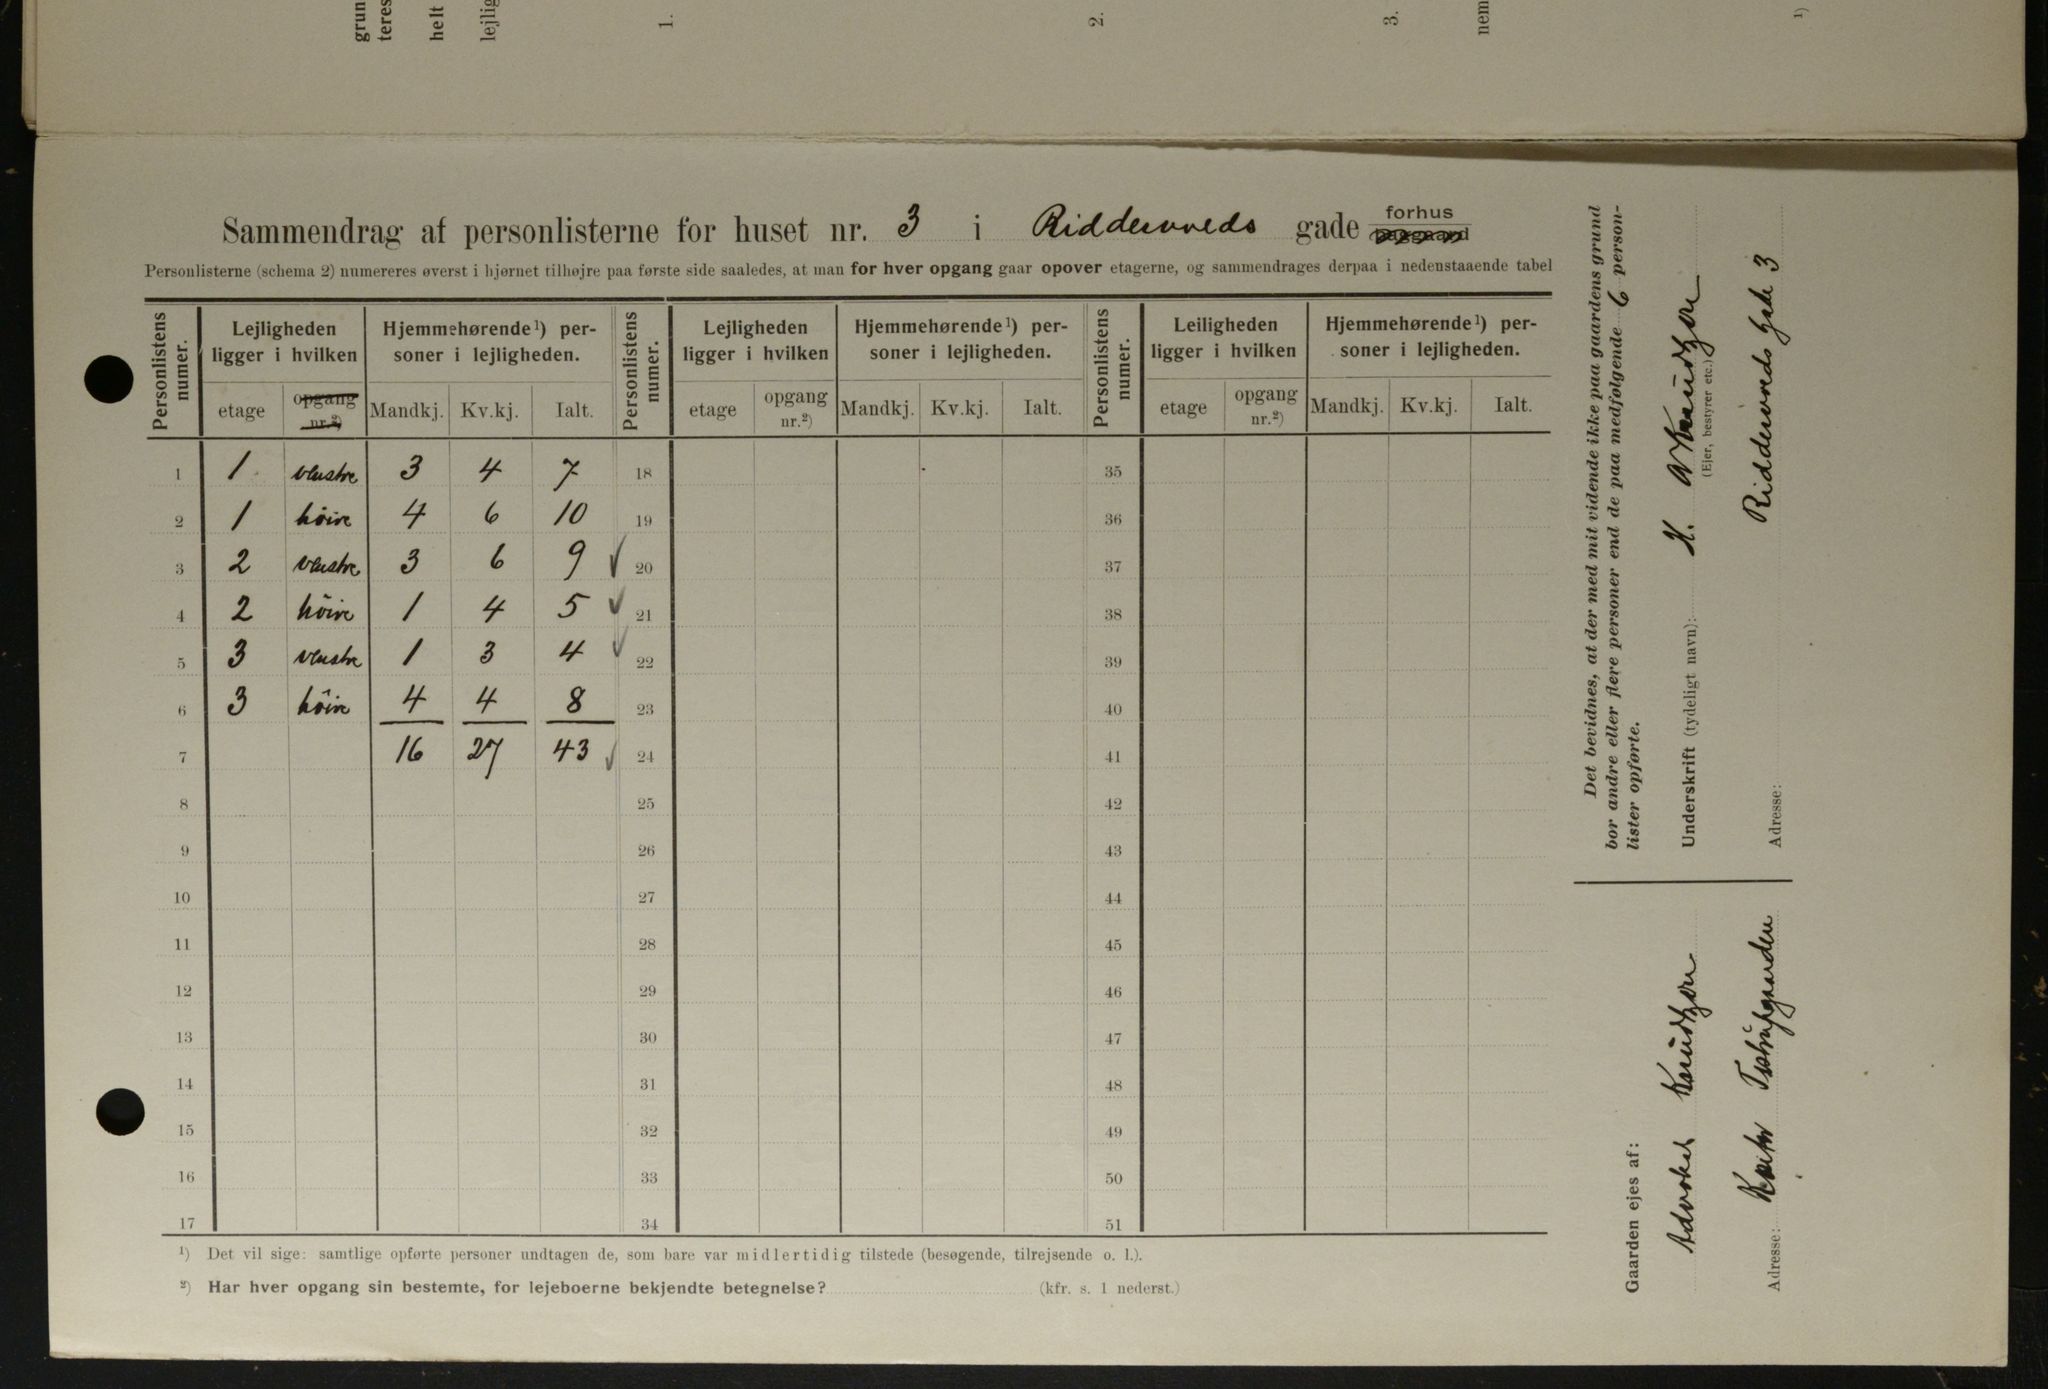 grun
teres
helt
lejlig
1.
2.
3.
nem
1)
Sammendrag af personlisterne for huset nr. 3 i Riddervolds gade forhus
baggaard
Personlisterne (schema 2) numereres øverst i hjørnet tilhøjre paa første side saaledes, at man for hver opgang gaar opover etagerne, og sammendrages derpaa i nedenstaaende tabel
Personlistens numer. Lejligheden ligger i hvilken Hjemmehørende¹) personer i lejligheden. Personlistens numer. Lejligheden ligger i hvilken Hjemmehørende¹) personer i lejligheden. Personlistens numer. Leiligheden ligger i hvilken Hjemmehørende¹) personer i lejligheden.
etage opgang nr.²) Mandkj. Kv.kj. Ialt. etage opgang nr.²) Mandkj. Kv.kj. Ialt. etage opgang nr.²) Mandkj. Kv.kj. Ialt.
1 1 venstre 3 4 7 18 35
2 1 höire 4 6 10 19 36
3 2 venstre 3 6 9 ✓ 20 37
4 2 höire 1 4 5 ✓ 21 38
5 3 venstre 1 3 4 ✓ 22 39
6 3 höire 4 4 8 23 40
7 16 27 43 ✓ 24 41
8 25 42
9 26 43
10 27 44
11 28 45
12 29 46
13 30 47
14 31 48
15 32 49
16 33 50
17 34 51
¹) Det vil sige: samtlige opførte personer undtagen de, som bare var midlertidig tilstede (besøgende, tilrejsende o. l.).
²) Har hver opgang sin bestemte, for lejeboerne bekjendte betegnelse? (kfr. s. 1 nederst.)
Det bevidnes, at der med mit vidende ikke paa gaardens grund
bor andre eller flere personer end de paa medfølgende 6 person-
lister opførte.
Underskrift (tydeligt navn): Knudtzon
(Ejer, bestyrer etc.)
Adresse: Riddervolds gade 3
Gaarden ejes af:
Advokat Knudtzon
Adresse: Tostrupgaarden